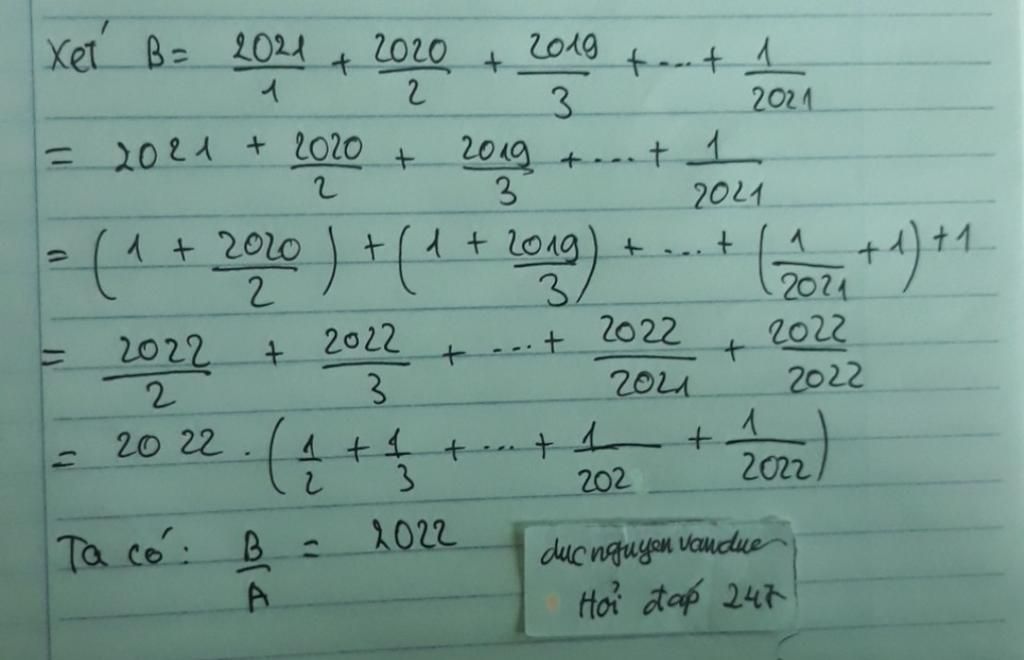 Xét B = 2021/1 + 2020/2 + 2019/3 + ... + 1/2021
= 2021 + 2020/2 + 2019/3 + ... + 1/2021
= (1 + 2020/2) + (1 + 2019/3) + ... + (1/2021 + 1) + 1
= 2022/2 + 2022/3 + ... + 2022/2021 + 2022/2022
= 2022 . (1/2 + 1/3 + ... + 1/202 + 1/2022)
Ta có: B/A = 2022
ducnguyenvanduc
Hỏi đáp 247